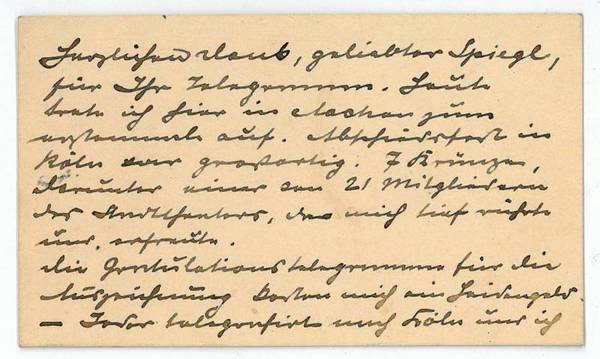 Herzlichen Dank, geliebter Spiegl,
für Ihr Telegramm. Heute
trete ich hier in Aachen zum
erstenmale auf. Abschiedsfest in
Köln war großartig. 7 Kränze,
darunter einer von 21 Mitgliedern
des Stadttheaters, das mich tief rührte
und erfreute.
Die Gratulationstelegramme für die
Auszeichnung kosten mich ein Heidengeld.
— Jeder telegrafirt nach Köln und ich